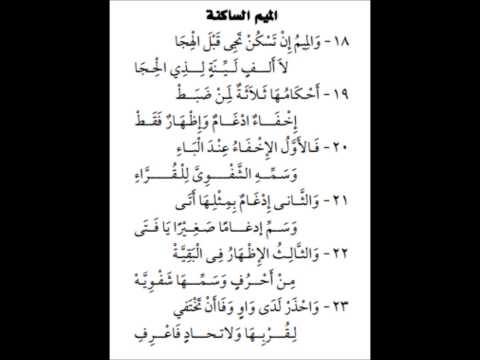 الميم الساكنة
١٨- وَالمِيمُ إِنْ تَسْكُنْ تَجِى قَبْلَ الْهِجَا
لاَ أَلِفٍ لَيِّنَةٍ لِذِي الْحِجَا
١٩- أَحْكَامُهَا ثَلاَثَةٌ لِمَنْ ضَبَطْ
إِخْفَاءٌ ادْغَامٌ وَإِظْهَارٌ فَقَطْ
٢٠- فَالأَوَّلُ الإِخْفَاءُ عِنْدَ الْبَاءِ
وَسَمِّهِ الشَّفْوِىَّ لِلْقُرَّاءِ
٢١- وَالثَّانِى إِدْغَامٌ بِمِثْلِهَا أَتَى
وَسَمِّ إِدغَامًا صَغِيْرًا يَا فَتَى
٢٢- وَالثَّالِثُ الإِظْهَارُ فِى الْبَقِيَّةْ
مِنْ أَحْرُفٍ وَسَمِّهَا شَفْوِيَّهْ
٢٣- وَاحْذَرْ لَدَى وَاوٍ وَفَا أَنْ تَخْتَفي
لِقُرْبِهَا وَلاتحادٍ فَاعْرِفِ